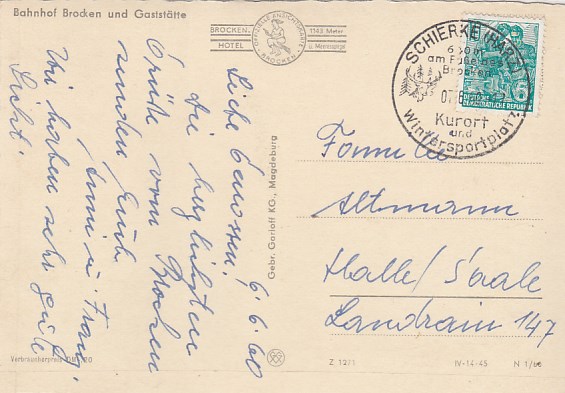 Bahnhof Brocken und Gaststätte
BROCKEN-HOTEL
OFFIZIELLE ANSICHTSKARTE
BROCKEN
1142 Meter
ü. Meeresspiegel
Liebe Genossen! 6.6.60
die herzlichsten
Grüße vom Brocken
senden Euch
Anni u. Franz
Wir haben sehr gute
Sicht!
Gebr. Garloff KG., Magdeburg
SCHIERKE (HARZ)
650 m
am Fuße des
Brocken
07
Kurort
und
Wintersportplatz
DEUTSCHE
DEMOKRATISCHE REPUBLIK
Familie
Altmann
Halle/Saale
Landrain 147
Verbraucherpreis DM
Z 12/1
IV-14-45
N 1/60